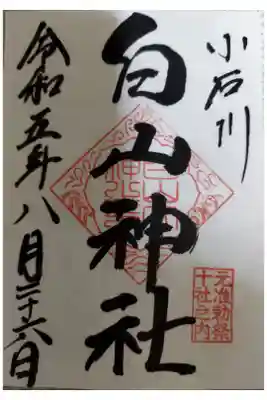 小石川
白山神社
令和五年八月二十六日
元准勅祭
十社之内